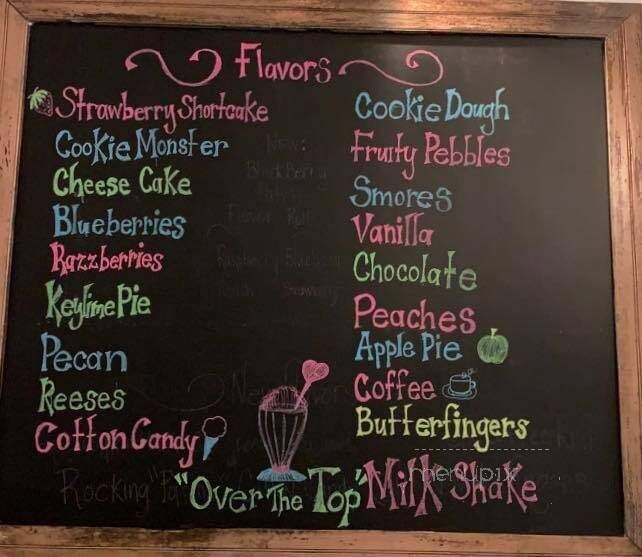 Flavors
Strawberry Shortcake
Cookie Monster
Cheese Cake
Blueberries
Razzberries
Keylime Pie
Pecan
Reeses
Cotton Candy
Cookie Dough
Fruity Pebbles
Smores
Vanilla
Chocolate
Peaches
Apple Pie
Coffee
Butterfingers
menupix
"Over The Top" Milk Shake
Rocking